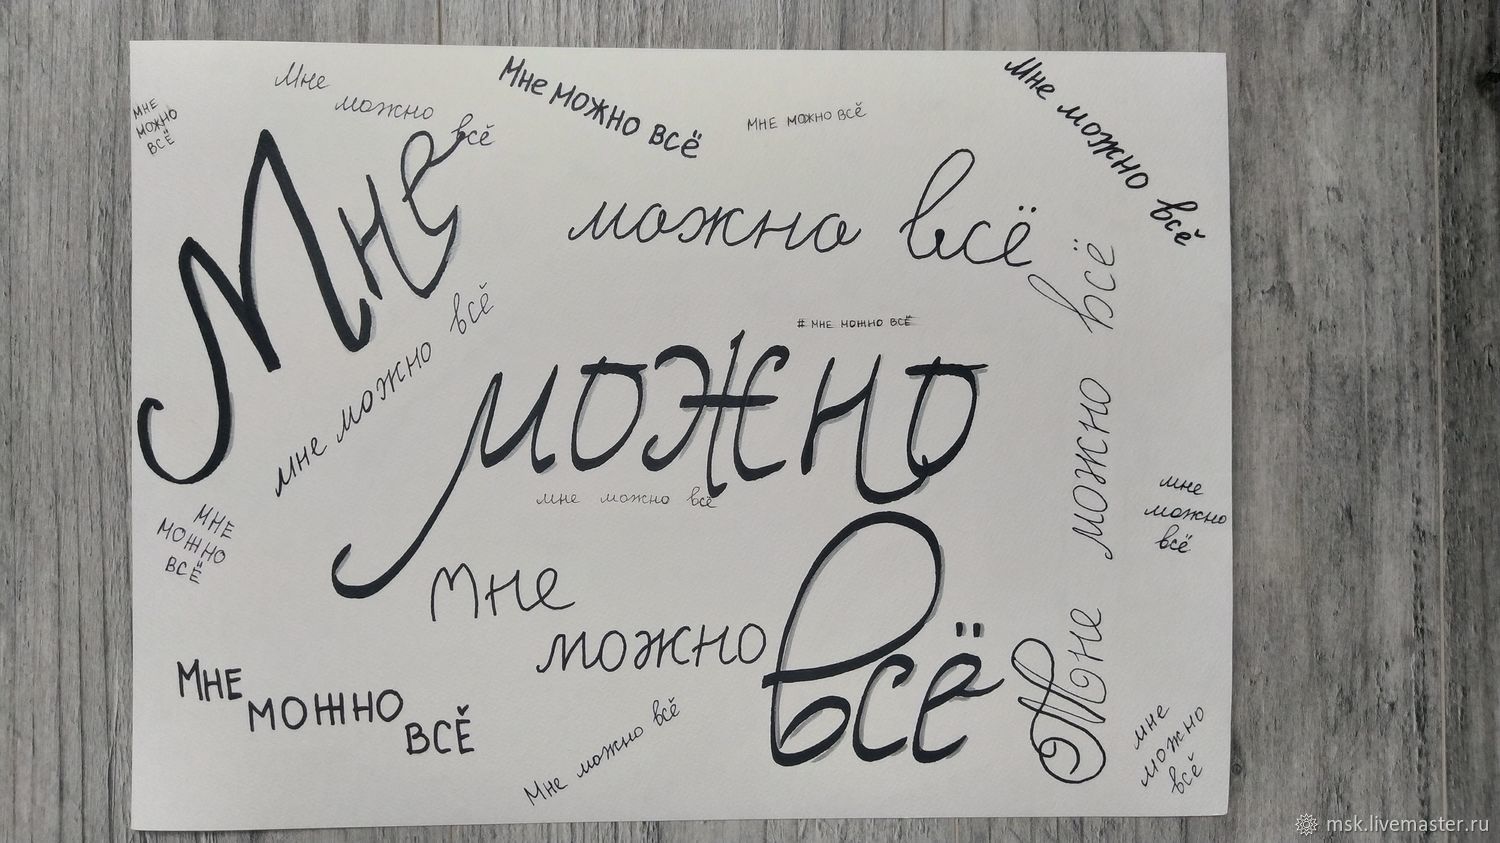 мне
можно
всё
Мне
можно
всё
Мне можно всё
мне можно всё
Мне можно всё
Мне
можно всё
мне можно всё
# мне можно всё
можно
мне можно всё
Мне можно всё
мне
можно
всё
МНЕ
МОЖНО
ВСЁ
Мне
можно
всё
Мне
можно
всё
Мне можно всё
мне
можно
всё
msk.livemaster.ru